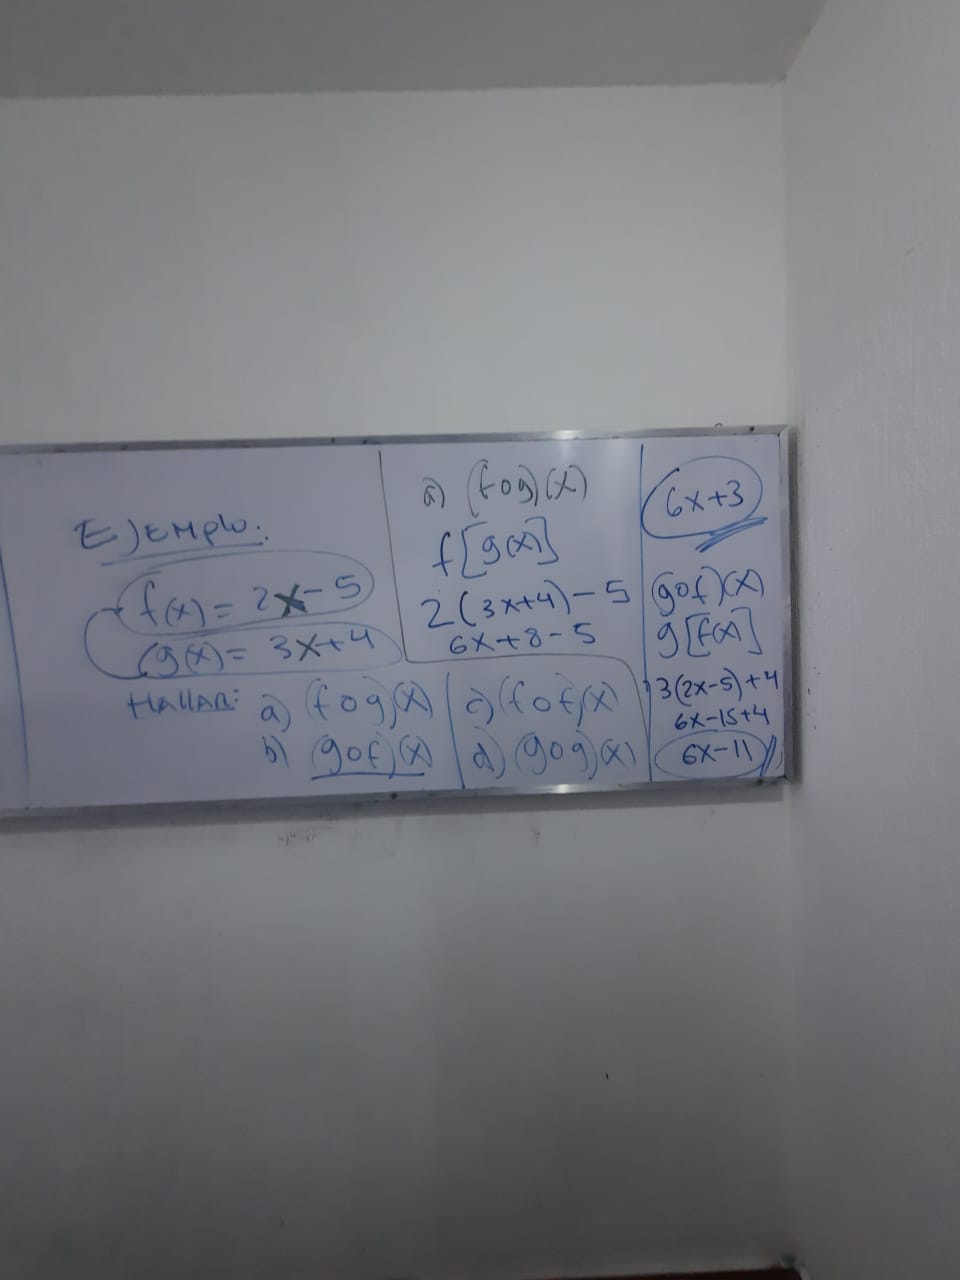 Ejemplo:
f(x) = 2x - 5
g(x) = 3x+4
Hallar:
a) (fog)(x)
b) (gof)(x)
c) (fof)(x)
d) (gog)(x)
a) (fog)(x)
f[g(x)]
2(3x+4) - 5
6x+8-5
6x+3
(gof)(x)
g[f(x)]
3(2x-5)+4
6x-15+4
6x-11